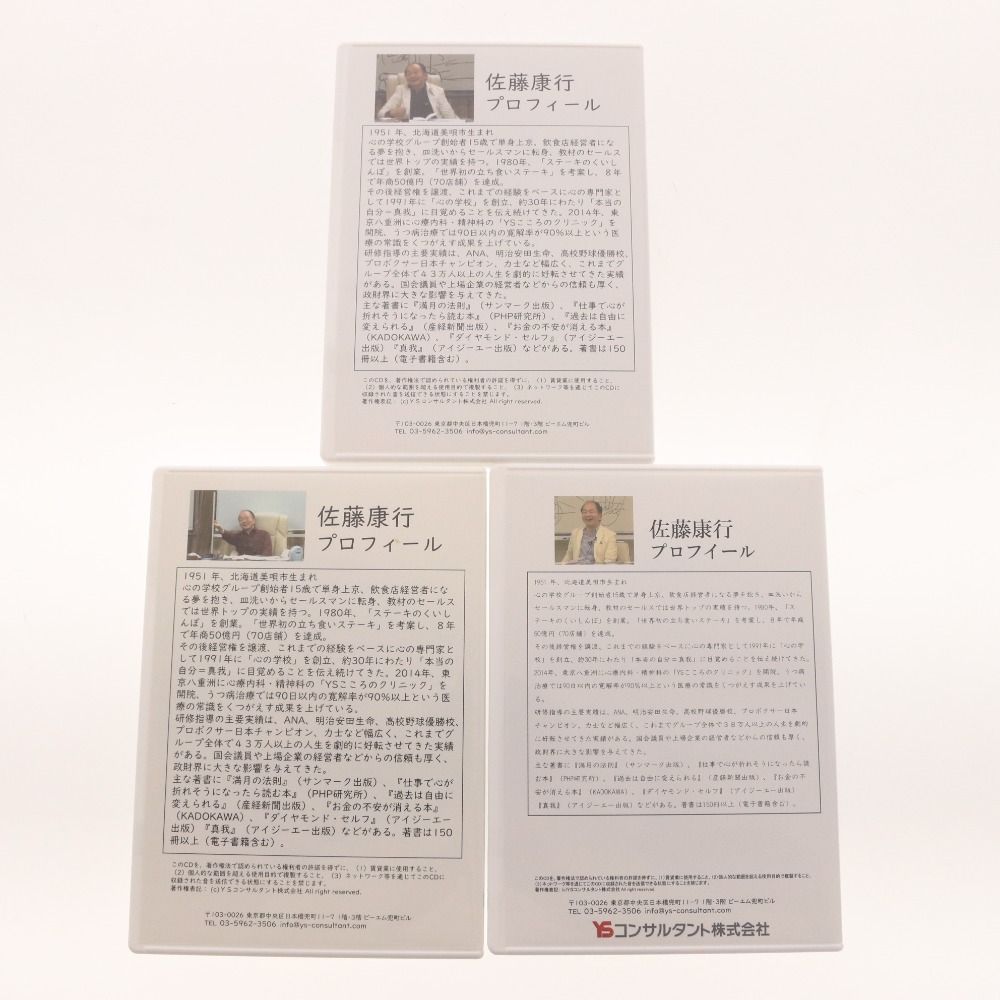 佐藤康行
プロフィール
1951年、北海道美唄市生まれ
心の学校グループ創始者15歳で単身上京、飲食店経営者にな
る夢を抱き、皿洗いからセールスマンに転身、教材のセールス
では世界トップの実績を持つ。1980年、「ステーキのくいし
んぼ」を創業。「世界初の立ち食いステーキ」を考案し、8年
で年商50億円（70店舗）を達成。
その後経営権を譲渡、これまでの経験をベースに心の専門家と
して1991年に「心の学校」を創立、約30年にわたり「本当の
自分＝真我」に目覚めることを伝え続けてきた。2014年、東
京八重洲に心療内科・精神科の「YSこころのクリニック」を
開院、うつ病治療では90日以内の寛解率が90％以上という医
療の常識をくつがえす成果を上げている。
研修指導の主要実績は、ANA、明治安田生命、高校野球優勝校、
プロボクサー日本チャンピオン、力士など幅広く、これまでグ
ループ全体で43万人以上の人生を劇的に好転させてきた実績
がある。国会議員や上場企業の経営者などからの信頼も厚く、
政財界に大きな影響を与えてきた。
主な著書に『満月の法則』（サンマーク出版）、『仕事で心が
折れそうになったら読む本』（PHP研究所）、『過去は自由に
変えられる』（産経新聞出版）、『お金の不安が消える本』
（KADOKAWA）、『ダイヤモンド・セルフ』（アイジーエー
出版）『真我』（アイジーエー出版）などがある。著書は150
冊以上（電子書籍含む）。
このCDを、著作権法で認められている権利者の許諾を得ずに、（1）賃貸業に使用すること、
（2）個人的な範囲を超える使用目的で複製すること、（3）ネットワーク等を通じてこのCDに
収録された音を送信できる状態にすることを禁じます。
著作権表記：（c)YSコンサルタント株式会社 All right reserved.
〒103-0026 東京都中央区日本橋兜町11-7 1階・3階 ビーエム兜町ビル
TEL 03-5962-3506 info@ys-consultant.com
佐藤康行
プロフィール
1951年、北海道美唄市生まれ
心の学校グループ創始者15歳で単身上京、飲食店経営者にな
る夢を抱き、皿洗いからセールスマンに転身、教材のセールス
では世界トップの実績を持つ。1980年、「ステーキのくいし
んぼ」を創業。「世界初の立ち食いステーキ」を考案し、8年
で年商50億円（70店舗）を達成。
その後経営権を譲渡、これまでの経験をベースに心の専門家と
して1991年に「心の学校」を創立、約30年にわたり「本当の
自分＝真我」に目覚めることを伝え続けてきた。2014年、東
京八重洲に心療内科・精神科の「YSこころのクリニック」を
開院、うつ病治療では90日以内の寛解率が90％以上という医
療の常識をくつがえす成果を上げている。
研修指導の主要実績は、ANA、明治安田生命、高校野球優勝校、
プロボクサー日本チャンピオン、力士など幅広く、これまでグ
ループ全体で43万人以上の人生を劇的に好転させてきた実績
がある。国会議員や上場企業の経営者などからの信頼も厚く、
政財界に大きな影響を与えてきた。
主な著書に『満月の法則』（サンマーク出版）、『仕事で心が
折れそうになったら読む本』（PHP研究所）、『過去は自由に
変えられる』（産経新聞出版）、『お金の不安が消える本』
（KADOKAWA）、『ダイヤモンド・セルフ』（アイジーエー
出版）『真我』（アイジーエー出版）などがある。著書は150
冊以上（電子書籍含む）。
このCDを、著作権法で認められている権利者の許諾を得ずに、（1）賃貸業に使用すること、
（2）個人的な範囲を超える使用目的で複製すること、（3）ネットワーク等を通じてこのCDに
収録された音を送信できる状態にすることを禁じます。
著作権表記：（c)YSコンサルタント株式会社 All right reserved.
〒103-0026 東京都中央区日本橋兜町11-7 1階・3階 ビーエム兜町ビル
TEL 03-5962-3506 info@ys-consultant.com
佐藤康行
プロフイール
1951年、北海道美唄市生まれ
心の学校グループ創始者15歳で単身上京、飲食店経営者になる夢を抱き、皿洗いから
セールスマンに転身、教材のセールスでは世界トップの実績を持つ。1980年、「ス
テーキのくいしんぼ」を創業。「世界初の立ち食いステーキ」を考案し、8年で年商
50億円（70店舗）を達成。
その後経営権を譲渡、これまでの経験をベースに心の専門家として1991年に「心の学
校」を創立、約30年にわたり「本当の自分＝真我」に目覚めることを伝え続けてきた。
2014年、東京八重洲に心療内科・精神科の「YSこころのクリニック」を開院、うつ病
治療では90日以内の寛解率が90％以上という医療の常識をくつがえす成果を上げてい
る。
研修指導の主要実績は、ANA、明治安田生命、高校野球優勝校、プロボクサー日本
チャンピオン、力士など幅広く、これまでグループ全体で38万人以上の人生を劇的
に好転させてきた実績がある。国会議員や上場企業の経営者などからの信頼も厚く、
政財界に大きな影響を与えてきた。
主な著書に『満月の法則』（サンマーク出版）、『仕事で心が折れそうになったら読
む本』（PHP研究所）、『過去は自由に変えられる』（産経新聞出版）、『お金の不
安が消える本』（KADOKAWA）、『ダイヤモンド・セルフ』（アイジーエー出版）
『真我』（アイジーエー出版）などがある。著書は150冊以上（電子書籍含む）。
このCDを、著作権法で認められている権利者の許諾を得ずに、(1)賃貸業に使用すること、(2)個人的な範囲を超える使用目的で複製すること、
(3)ネットワーク等を通じてこのCDに収録された音を送信できる状態にすることを禁じます。
著作権表記：(c)YSコンサルタント株式会社 All right reserved.
〒103-0026 東京都中央区日本橋兜町11-7 1階・3階 ビーエム兜町ビル
TEL 03-5962-3506 info@ys-consultant.com
YSコンサルタント株式会社